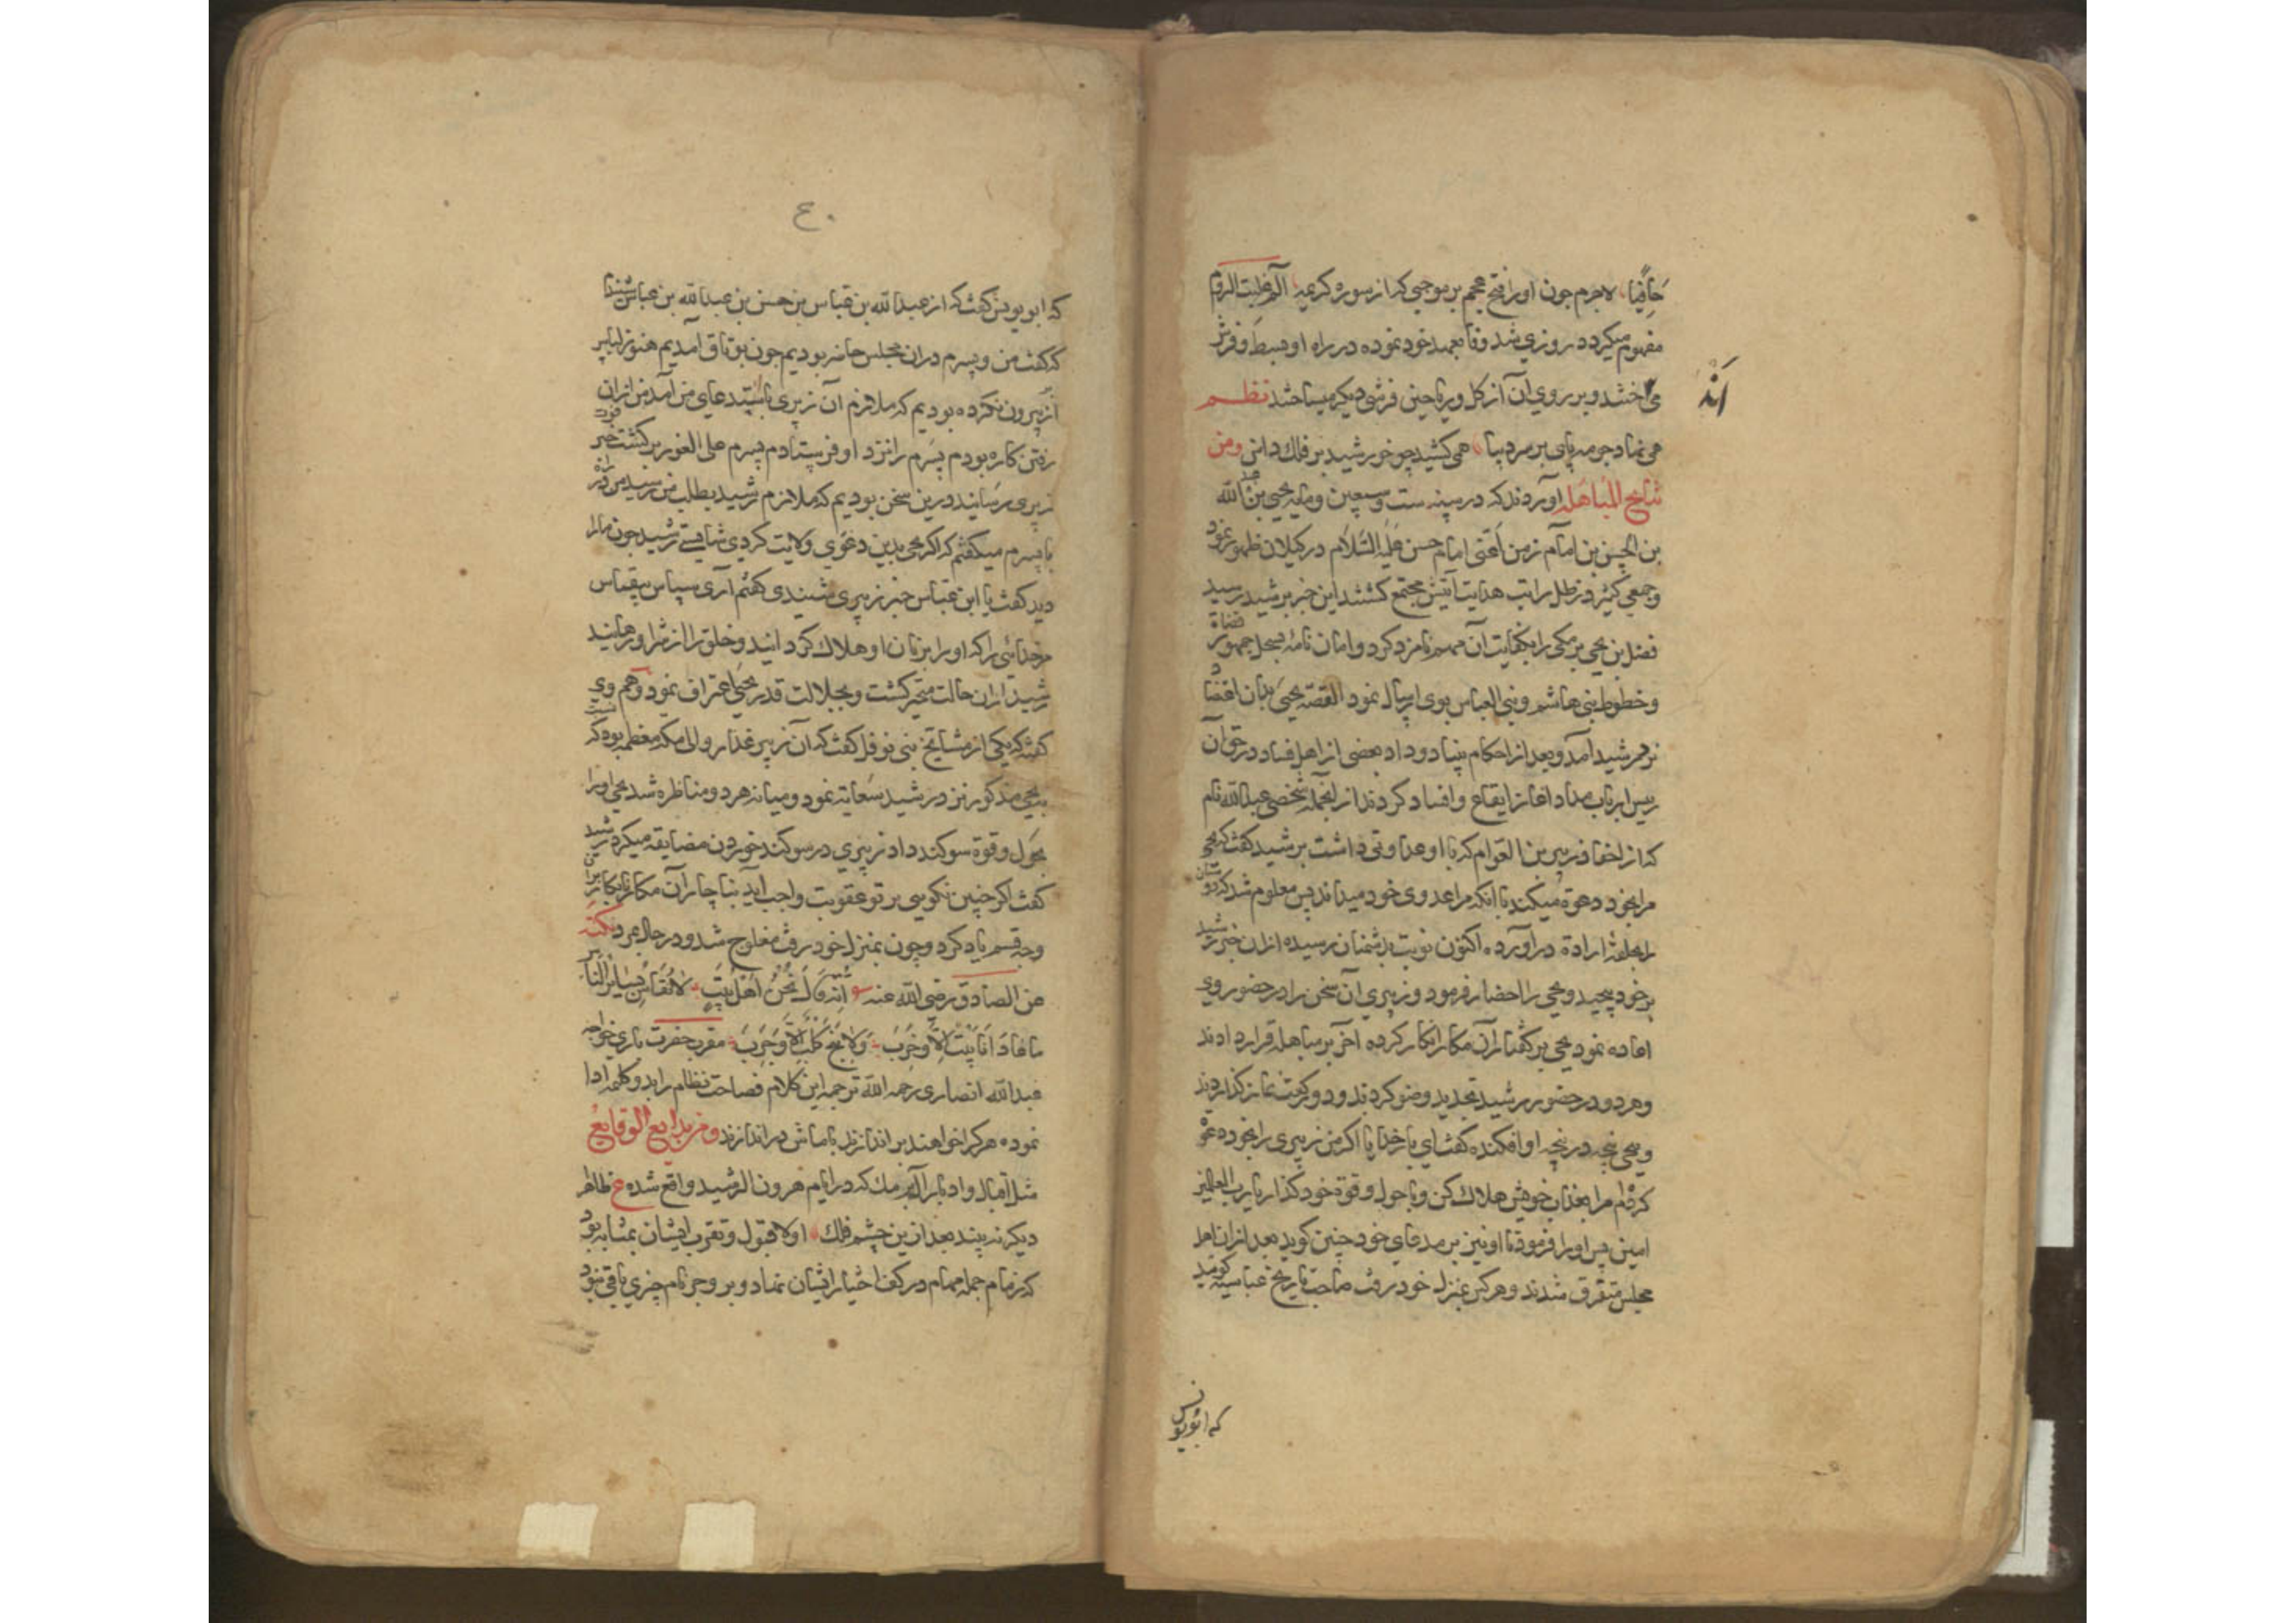 حافیا لاجرم چون اورا فتح عجم بر موجبی که از سوره کریمه الم غلبت الروم
مفهوم میکردد روزی شد وفا بعهد خود نموده در راه او بسط و فرش
می انداختند و بر روی آن از کل و ریاحین فرشی دیکر میساختند نظم
اند
همی نهاد چو مه پای بر سر دیبا همی کشید چو خورشید بر فلک دامن ومن
نتایج المباهله آورده اند که در سنه ست وسبعین ومایه یحیی بن عبد الله
بن الحسن بن امام زمن اعنی امام حسن علیه السلام در کیلان ظهور نمود
وجمعی کثیر در ظل رایت هدایت آیتش مجتمع کشتند این خبر برشید رسید
فضل بن یحیی برمکی را بکفایت آن مهم نامزد کرد وامان نامه بسجل جمهور قضاة
وخطوط بنی هاشم وبنی العباس بوی ارسال نمود القصه یحیی بدان
نزد رشید آمد وبعد از احکام بنیاد وداد بعضی از اهل فساد در حق آن
رییس ارباب سداد اغاز ایقاع وافساد کردند از انجمله شخصی عبدالله نام
که از احفاد زبیر بن العوام که با او عداوتی داشت برشید کفت که یحیی
مرا بخود دعوة میکند با انکه مرا عدوی خود میداند پس معلوم شد که دوستان
را بحلقه ارادة در آورده اکنون نوبت بدشمنان رسیده ازان خبر رشید
بر خود پیچید ویحیی را احضار فرمود وزبیری آن سخن را در حضور وی
اعاده نمود یحیی بر کفتار آن مکار انکار کرده آخر بر مباهله قرار دادند
وهر دو در حضور رشید تجدید وضو کردند ودو رکعت نماز کذاردند
ویحیی پنجه در پنجه او افکنده کفت ای بار خدایا اکر من زبیری را بخود دعوة
کرده ام مرا بعذاب خویش هلاک کن وبا حول وقوة خود کذار یا رب العالمین
امین پس اورا فرمود تا او نیز بر مدعای خود چنین کوید بعد از ان اهل
مجلس متفرق شدند وهر کس بمنزل خود رفت صاحب تاریخ عباسیه کوید
که ابویونس
۴۰
که ابو یونس کفت که از عبدالله بن عباس بن حسن بن عبدالله بن عباس شنیدم
که کفت من وپسرم دران مجلس حاضر بودیم چون بوثاق آمدیم هنوز لباس
از بر بیرون نکرده بودیم که ملازم آن زبیری باستدعای من آمد من از ان
رفتن کاره بودم پسرم را نزد او فرستادم پسرم علی الفور برکشت خبر فوت
زبیری رسانید درین سخن بودیم که ملازم رشید بطلب من رسید من در راه
با پسرم میکفتم که اکر یحیی بدین دعوی ولایت کردی شایستی رشید چون مارا
دید کفت یا ابن عباس خبر زبیری شنیدی کفتم آری سپاس بیقیاس
مر خدائی را که او را بزبان او هلاک کردانید وخلق را از شر او رهانید
رشید ازان حالت متحیر کشت وبجلالت قدر یحیی اعتراف نمود وهم وی
کفته که یکی از مشایخ بنی نوفل کفت که آن زبیر غدار والی مکه معظمه بود که نسبت
به یحیی مذکور نزد رشید سعایة نمود ومیانه هر دو مناظره شد یحیی اورا
بحول وقوة سوکند داد زبیری در سوکند خوردن مضایقه میکرد رشید
کفت اکر چنین نکویی بر تو عقوبت واجب آید بناچار آن مکار نابکار بران
وجه قسم یاد کرد وچون بمنزل خود رفت مفلوج شد ودر حال بمرد نکته
عن الصادق رضی الله عنه انه قال نحن اهل بیت لا نقاس بسایر الناس
ما عادانا بیت الا وخرب ولا نبح کلب الا وجرب مقرب حضرت باری خواجه
عبدالله انصاری رحمه الله ترجمه این کلام فصاحت نظام را بدو کلمه ادا
نموده هر کرا خواهند بر اندازند با ماش در اندازند ومن بدایع الوقایع
مثل اقبال وادبار آل برمک که در ایام هرون الرشید واقع شده ع ظاهرا
دیکر نه بیند بعد ازین چشم فلک اولا قبول وتقرب ایشان بمثابه بود
که زمام جمله مهام در کف اختیار ایشان نهاد وبر وجز نام چیزی باقی نبود